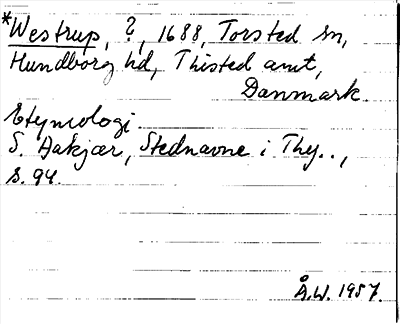 *Westrup, ?, 1688, Torsted sn,
Hundborg hd, Thisted amt,
Danmark.
Etymologi.
S. Aakjær, Stednavne i Thy..,
s. 94.
Å.W. 1957.